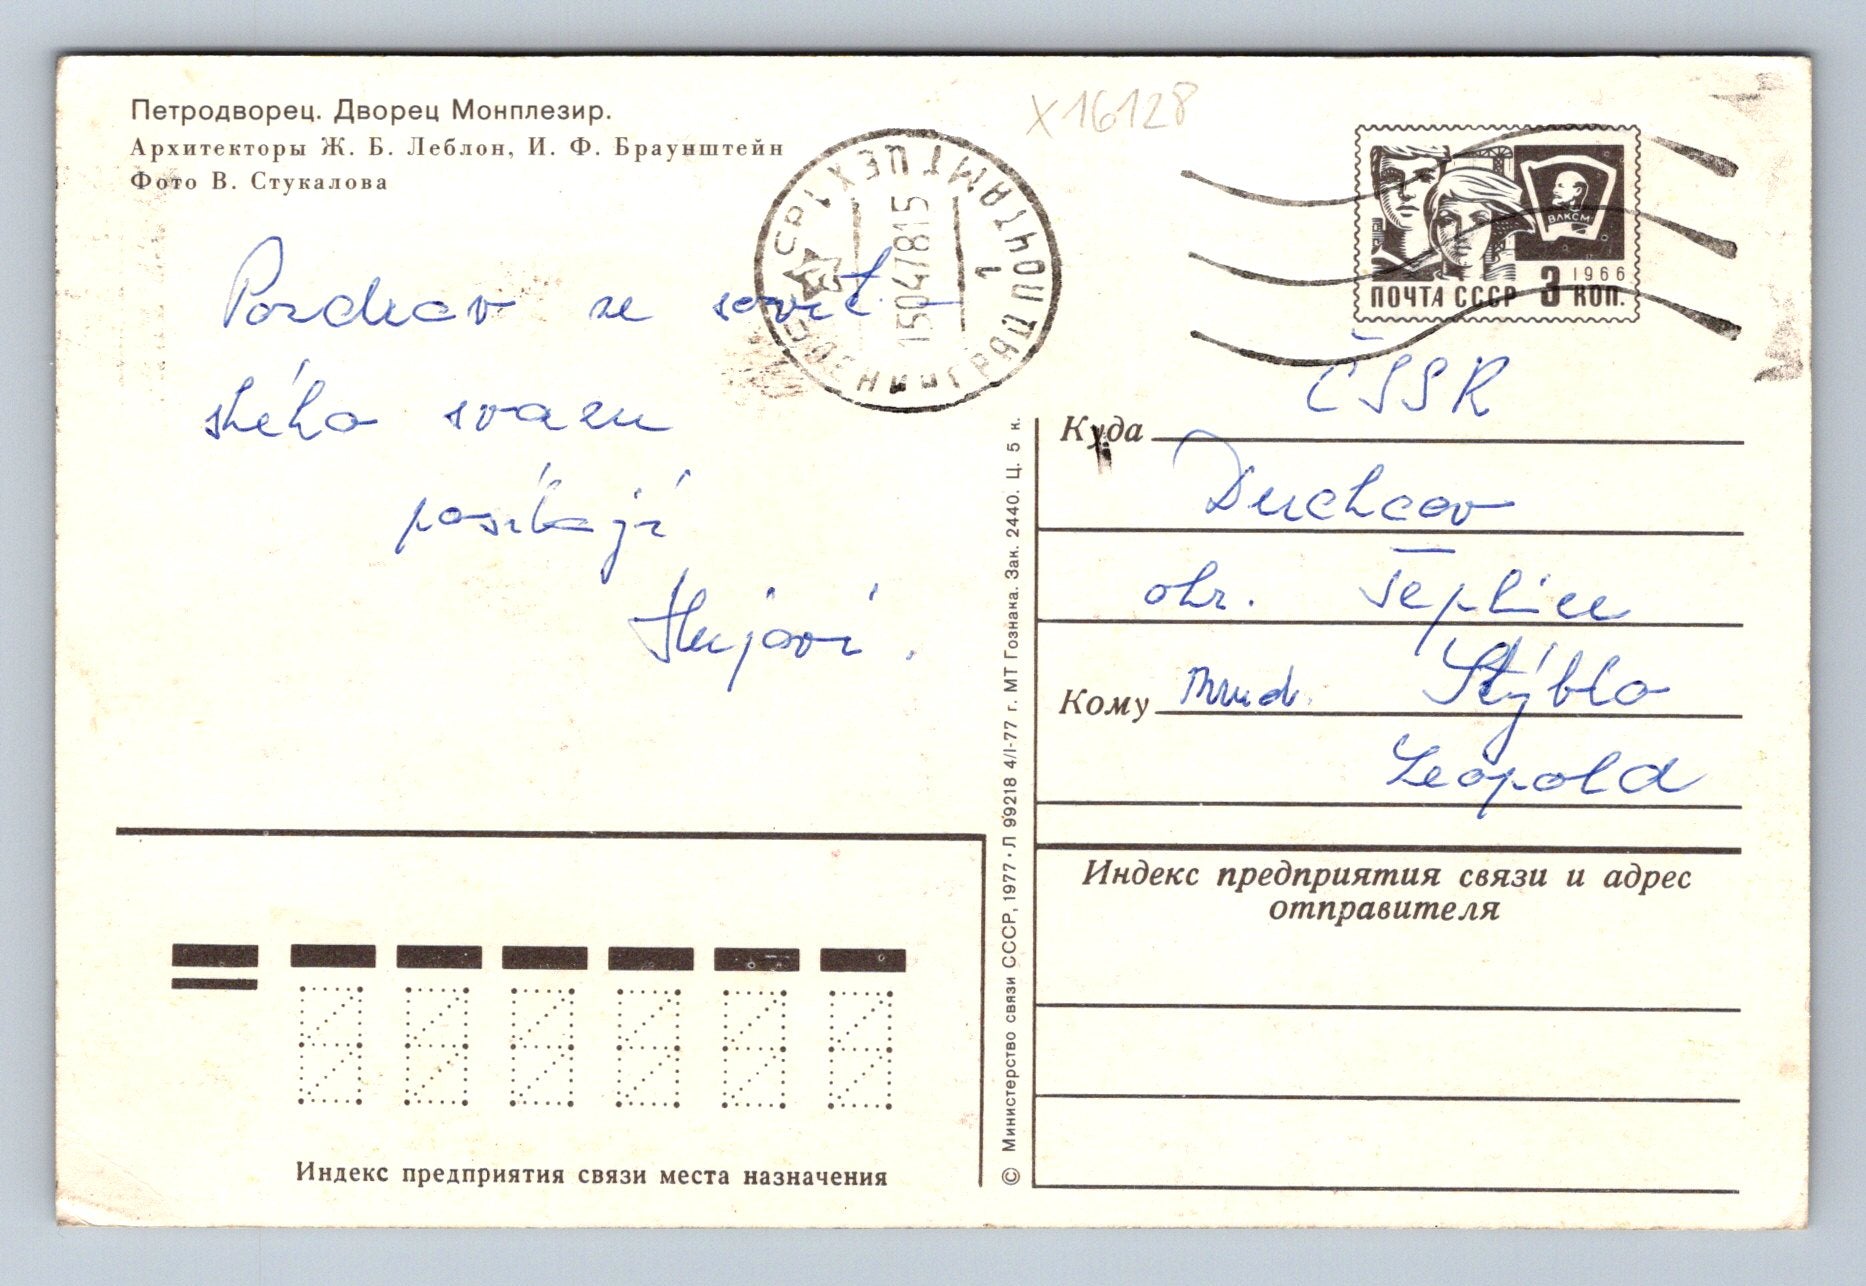 Петродворец. Дворец Монплезир.
Архитекторы Ж. Б. Леблон, И. Ф. Браунштейн
Фото В. Стукалова
X16128
ВЛКСМ
1966
ПОЧТА СССР 3 КОП.
СССР ЛЕНИНГРАД ПОЧТАМТ ЦЕХ
1
15047815
Pozdrav ze sovět
ského svazu
posílají
Hujovi.
© Министерство связи СССР, 1977 · Л 99218 4/I-77 г. МТ Гознана. Зак. 2440. Ц. 5 к.
ČSSR
Куда
Duchcov
okr. Teplice
Кому Mud. Stýblo
Leopold
Индекс предприятия связи и адрес
отправителя
Индекс предприятия связи места назначения